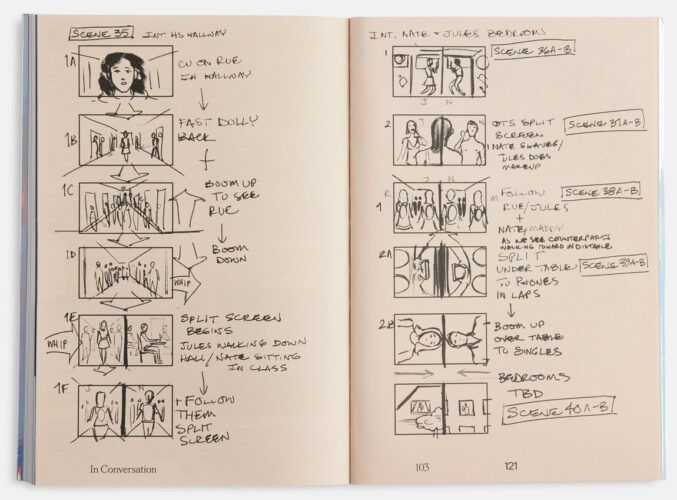 SCENE 35 INT. HS HALLWAY
1A
CU ON RUE
IN HALLWAY
1B
FAST DOLLY
BACK
1C
BOOM UP
TO SEE
RUE
BOOM
DOWN
1D
WHIP
1E
WHIP
SPLIT SCREEN
BEGINS
JULES WALKING DOWN
HALL/NATE SITTING
IN CLASS
1F
J N
+ FOLLOW
THEM
SPLIT
SCREEN
In Conversation
INT. NATE + JULES BEDROOMS
1
SCENE 36A-B
J N
2
J N
OTS SPLIT
SCREEN
NATE SHAVES/
JULES DOES
MAKEUP
SCENE 37A-B
R J N M
1
FOLLOW
RUE/JULES
+
NATE/MADDY
AS WE SEE COUNTERPARTS
WALKING TOWARD IN DISTANCE
SCENE 38A-B
2A
SPLIT
UNDER TABLE
TO PHONES
IN LAPS
SCENE 39A-B
2B
BOOM UP
OVER TABLE
TO SINGLES
BEDROOMS
TBD
SCENE 40A-B
103 121